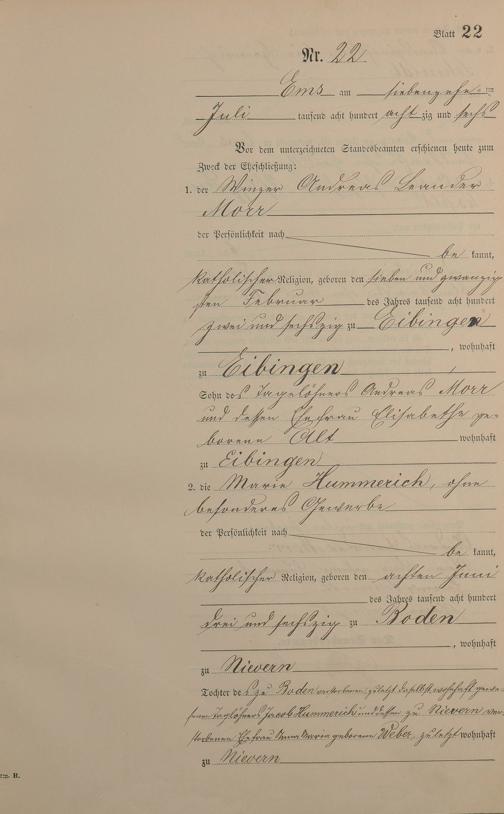 Blatt 22
Nr. 22
Ems am siebenzehn=
Juli tausend acht hundert acht zig und sechs
Vor dem unterzeichneten Standesbeamten erschienen heute zum
Zweck der Eheschließung:
1. der Winzer Andreas Leander
Morr
der Persönlichkeit nach
be kannt,
katholischer Religion, geboren den sieben und zwanzig
sten Februar des Jahres tausend acht hundert
zwei und sechszig zu Eibingen
, wohnhaft
zu Eibingen
Sohn des Tagelöhners Andreas Morr
und dessen Ehefrau Elisabethe ge-
borene Alt wohnhaft
zu Eibingen
2. die Marie Hummerich, ohne
besonderes Gewerbe
der Persönlichkeit nach
be kannt,
katholischer Religion, geboren den achten Juni
des Jahres tausend acht hundert
drei und sechszig zu Boden
, wohnhaft
zu Nievern
Tochter des zu Boden verstorbenen, zuletzt daselbst wohnhaft gewe-
senen Taglöhners Jacob Hummerich und dessen zu Nievern ver-
storbenen Ehefrau Anna Maria geborene Weber, zuletzt wohnhaft
zu Nievern
B.